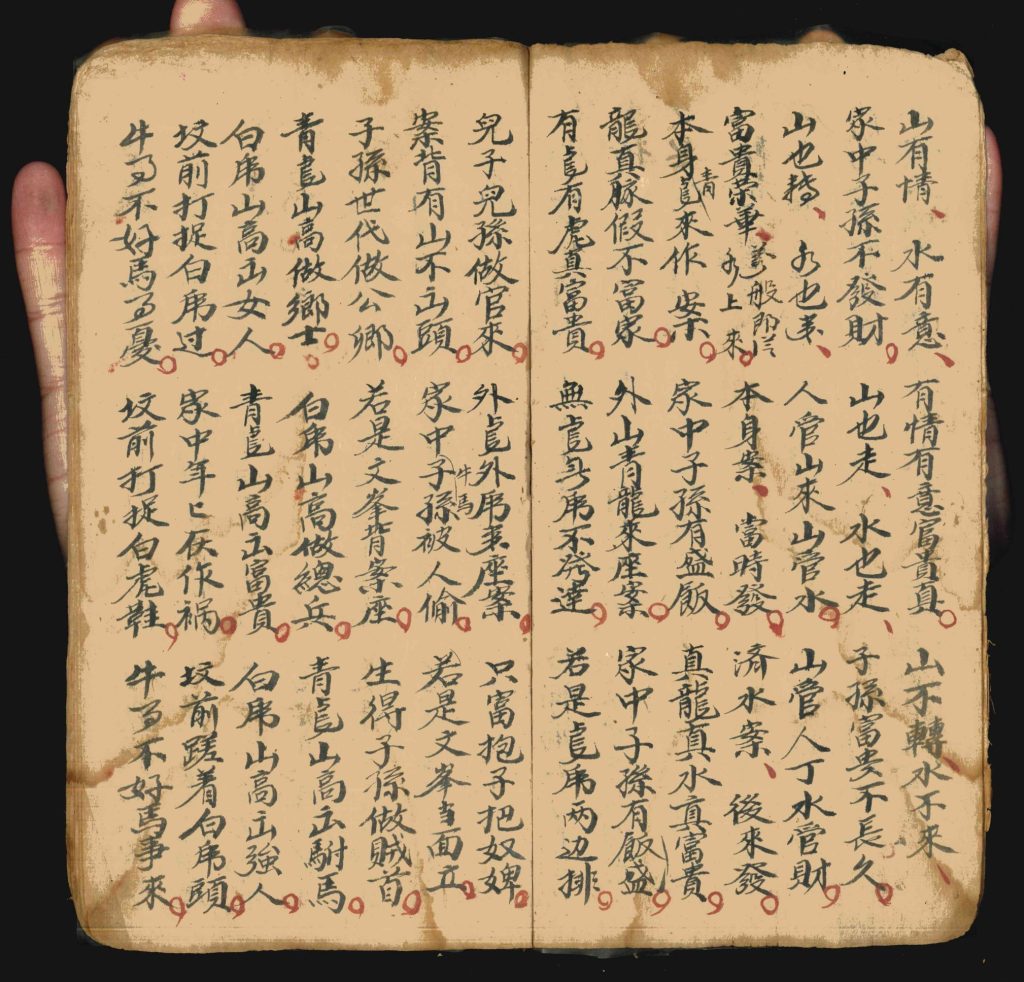 山有情、水有意、有情有意富貴真山不轉水不來、
家中子孫不發財山也走、水也走、子孫富貴不長久
山也轉、水也来、人管山來山管水山管人丁水管財
富貴榮華萬般即從水上來本身案、當時發済水案、後來發
本身青龙來作案家中子孫有盛飯真龍真水真富貴
龍真脉假不富家外山青龍來座案家中子孫有飯盛
有龙有虎真富貴無龙无虎不發達若是龙虎两边排
兒子兒孫做官來外龙外虎来座案只富抱子把奴婢
案背有山不出頭家中子孫牛馬被人偷若是文峯当面立
子孫世代做公卿若是文峯背案座生得子孫做賊首
青龙山高做鄉士白虎山高做總兵青龙山高出駙馬
白虎山高出女人青龙山高出富貴白虎山高出強人
坟前打捉白虎过家中年匕作禍坟前蹉着白虎頭
牛不好馬憂坟前打捉白虎鞋牛不好馬事來